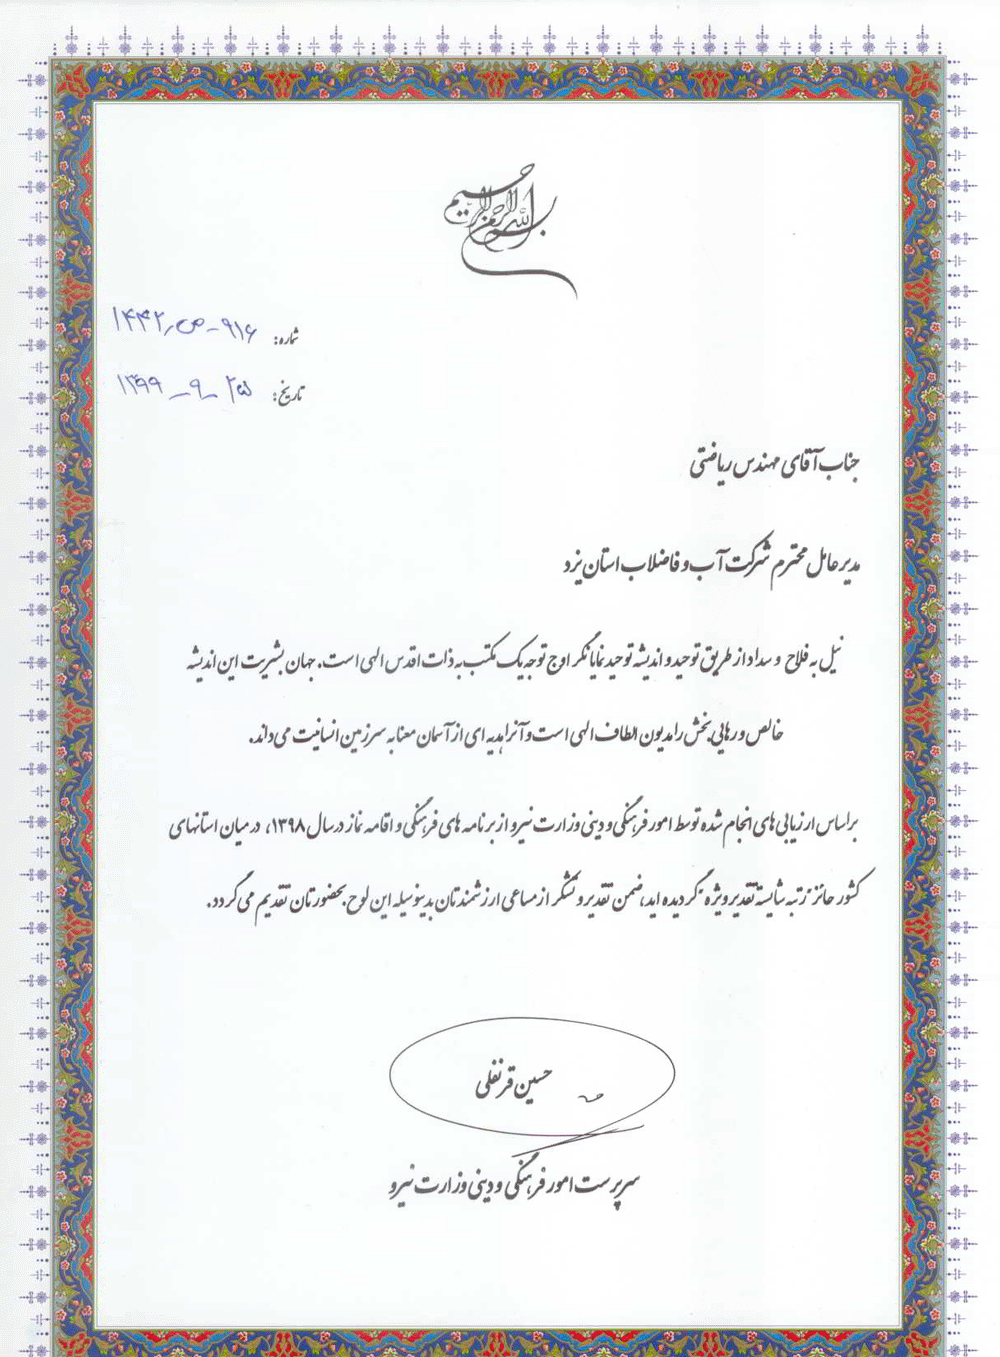 بسم الله الرحمن الرحیم
شماره: ۹۱۶-ص/۱۴۴۲
تاریخ: ۲۵-۹-۱۳۹۹
جناب آقای مهندس ریاضتی
مدیرعامل محترم شرکت آب و فاضلاب استان یزد
نیل به فلاح و سداد از طریق توحید و اندیشه توحید نمایانگر اوج توجه یک مکتب به ذات اقدس الهی است. جهان بشریت این اندیشه
خالص و رهایی بخش را مدیون الطاف الهی است و آنرا هدیه ای از آسمان معنا به سرزمین انسانیت می داند.
براساس ارزیابی های انجام شده توسط امور فرهنگی و دینی وزارت نیرو از برنامه های فرهنگی و اقامه نماز در سال ۱۳۹۸، در میان استانهای
کشور حائز رتبه شایسته تقدیر ویژه گردیده اید، ضمن تقدیر و تشکر از مساعی ارزشمندتان بدینوسیله این لوح بحضورتان تقدیم می گردد.
حسین قرنفلی
سرپرست امور فرهنگی و دینی وزارت نیرو